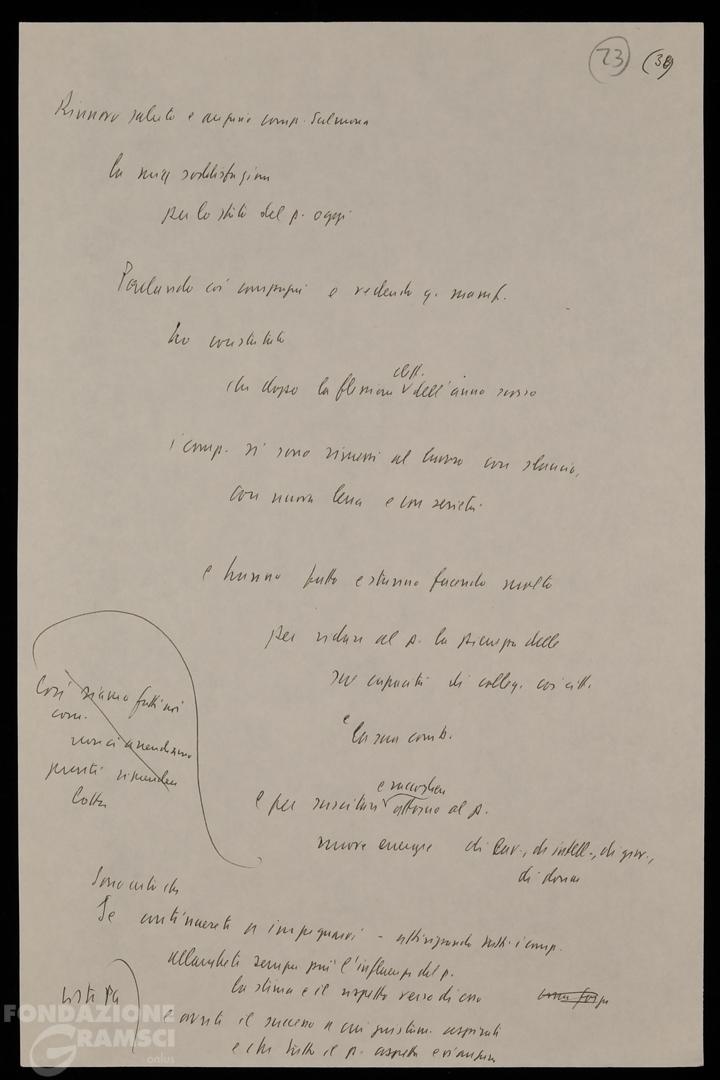 23 (38)
Rinnovo saluto e augurio comp. Salmona
la mia soddisfazione
per lo stato del p. oggi
Parlando coi compagni e vedendo q. manif.
ho constatato
che dopo la flessione elett. dell'anno scorso
i comp. si sono rimessi al lavoro con slancio,
con nuova lena e con serietà.
e hanno fatto e stanno facendo molto
per ridare al p. la pienezza delle
sue capacità di colleg. coi citt.
e la sua comb.
e per suscitare e raccogliere attorno al p.
nuove energie di lav., di intell., di giov.,
di donne
Così siamo fatti noi
com.
non ci arrendiamo
pronti riprendere
lotta
Sono certo che
Se continuerete a impegnarvi - attivizzando tutti i comp.
allargherete sempre più l'influenza del p.
la stima e il rispetto verso di esso
lista Pci
e avrete il successo a cui giustam. aspirate
e che tutto il p. aspetta e vi augura
FONDAZIONE
GRAMSCI
onlus